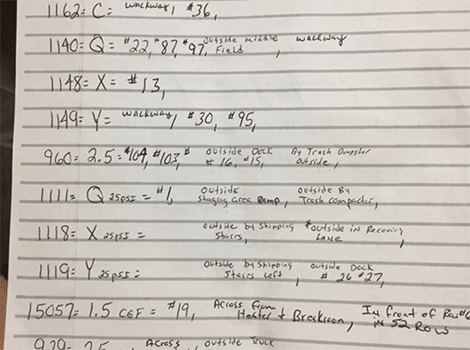 1162= C= walkway, #36,
1140= Q= #22, #87, #97, outside middle Field walkway
1148= X= #13,
1149= Y= walkway, #30, #95,
960= 2.5= #104, #103, # outside Dock #16, #15, By Trash Dumpster outside,
1111= Q 25PSI = #1, outside staging area Ramp, outside By Trash compactor,
1118= X 25PSI = outside by Shipping Stairs, outside in Receiving LANE,
1119= Y 25PSI= outside by Shipping Stairs Left, outside Dock #26 #27,
15057= 1.5 CGF = #19, Across From Heater + Breakroom, In front of Row #6 in 52 ROW
929= 2.5 Across outside Truck